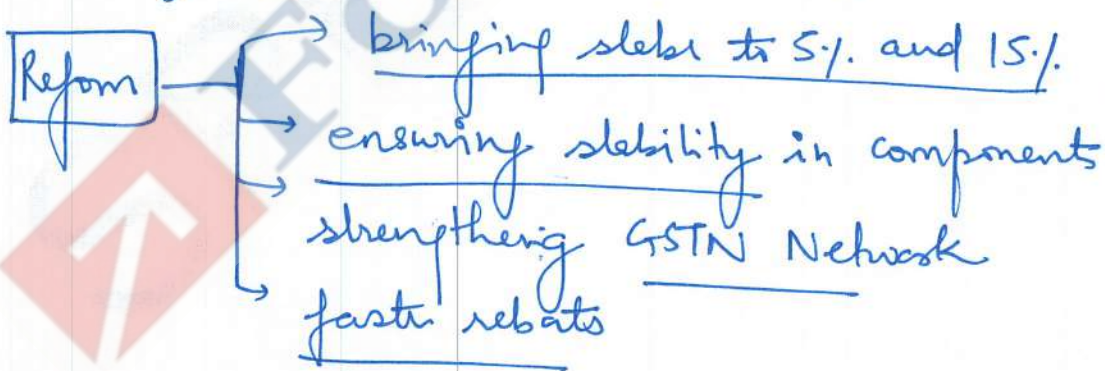 Reform
bringing slabs to 5% and 15%
ensuring stability in components
strengthenig GSTN Network
faster rebats